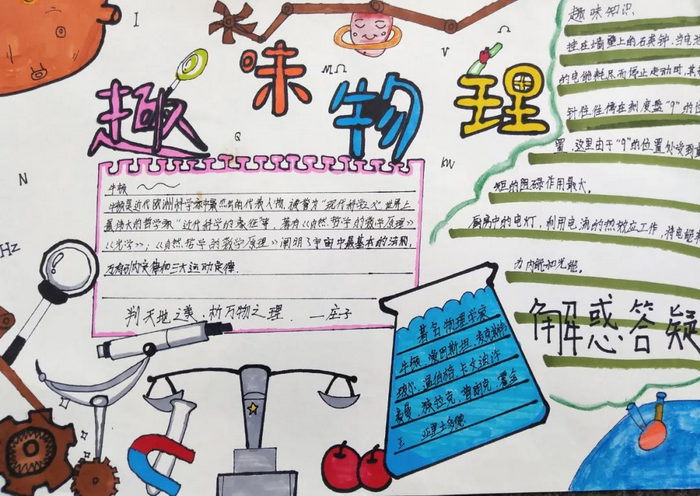 I
V
MΩ
Q
KW
N
Hz
趣味物理
牛顿
牛顿是近代欧洲科学家中最杰出的代表人物,被誉为"现代科学之父"世界上
最伟大的哲学家"近代科学的奠征等,著有《自然哲学的数学原理》
《光学》;《自然哲学的数学原理》阐明了宇宙中最基本的法则,
万有引力定律和三大运动定律.
判天地之美,析万物之理. —庄子
著名物理学家
牛顿,爱因斯坦,
玻尔,
麦曼,狄拉克,普朗克,
趣味知识.
挂在墙壁上的石英钟,当电池
的电能耗尽而停止走动时,其
针往往停在刻度盘"9"的位
置,这里由于"9"的位置处收到重
矩的阻碍作用最大.
厨房中的电灯,利用电流的热效应工作,将电能
为内能和光能.
解惑答疑